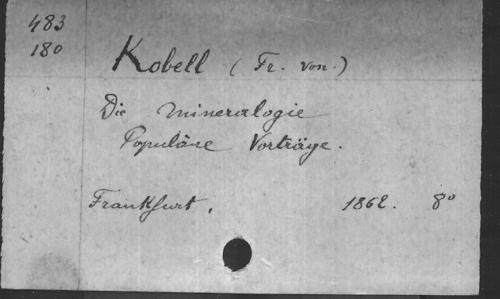 483
180
Kobell (Fr. von.)
Die Mineralogie
Populäre Vorträge.
Frankfurt, 1862. 8°